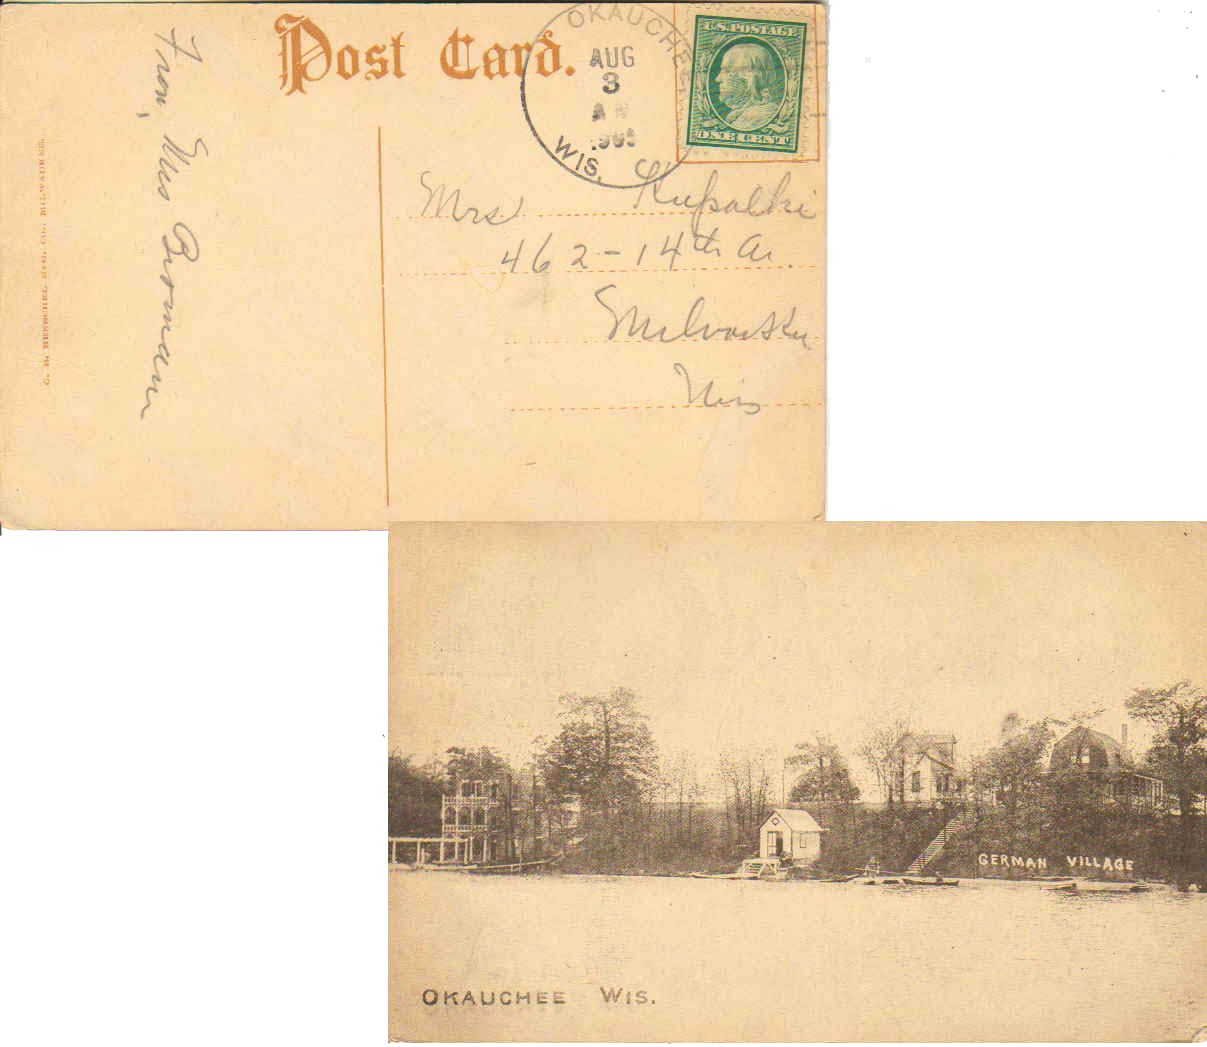 Post Card.
OKAUCHEE
AUG
3
WIS.
U.S. POSTAGE
ONE CENT
Mrs Kupalski
462-14th Av.
Milwaukee
Wis
From Mrs
C. H. CO., MILWAUKEE.
GERMAN VILLAGE
OKAUCHEE WIS.